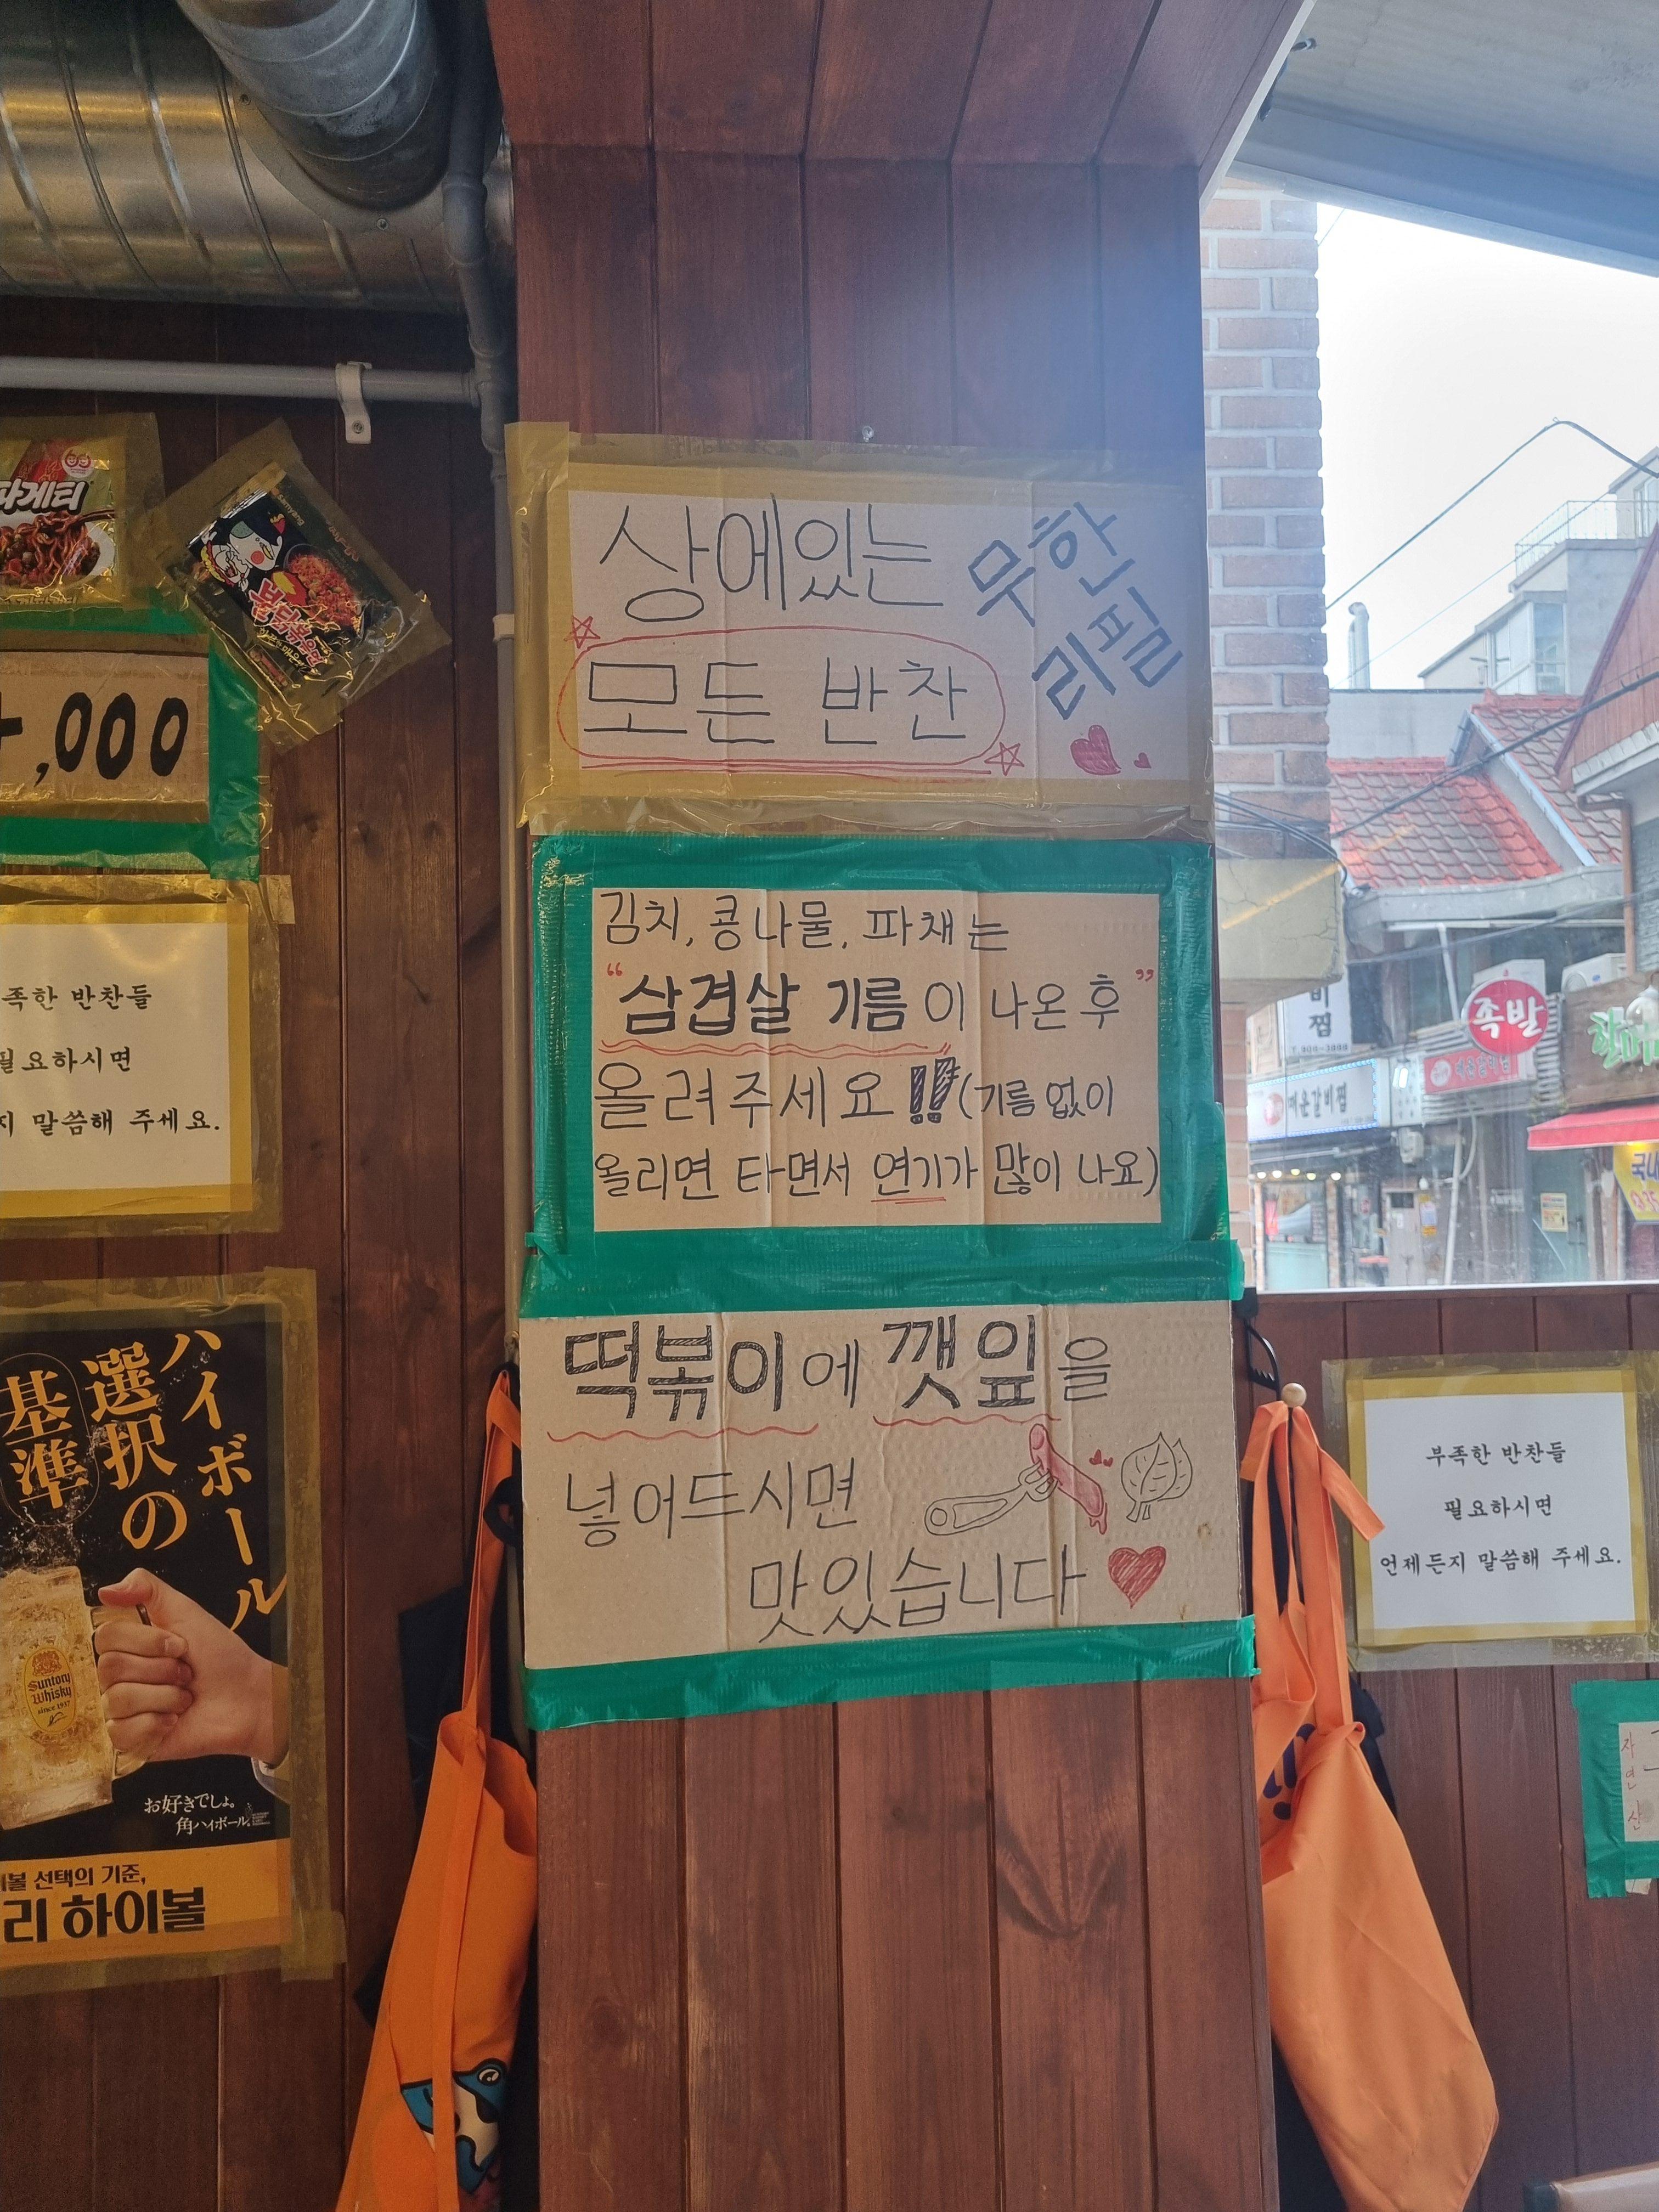 파게티
불닭볶음면
,000
족한 반찬들
필요하시면
지 말씀해 주세요.
ハイボール
選択の
基準
Suntory
Whisky
since 1937
お好きでしょ。
角ハイボール
볼 선택의 기준,
리 하이볼
상에있는
모든 반찬
무한
리필
김치, 콩나물, 파채는
“삼겹살 기름이 나온 후”
올려주세요!! (기름 없이
올리면 타면서 연기가 많이 나요)
떡볶이에 깻잎을
넣어드시면
맛있습니다
비
찜
T.909-3888
족발
매운갈비찜
국내
부족한 반찬들
필요하시면
언제든지 말씀해 주세요.
자
연
산